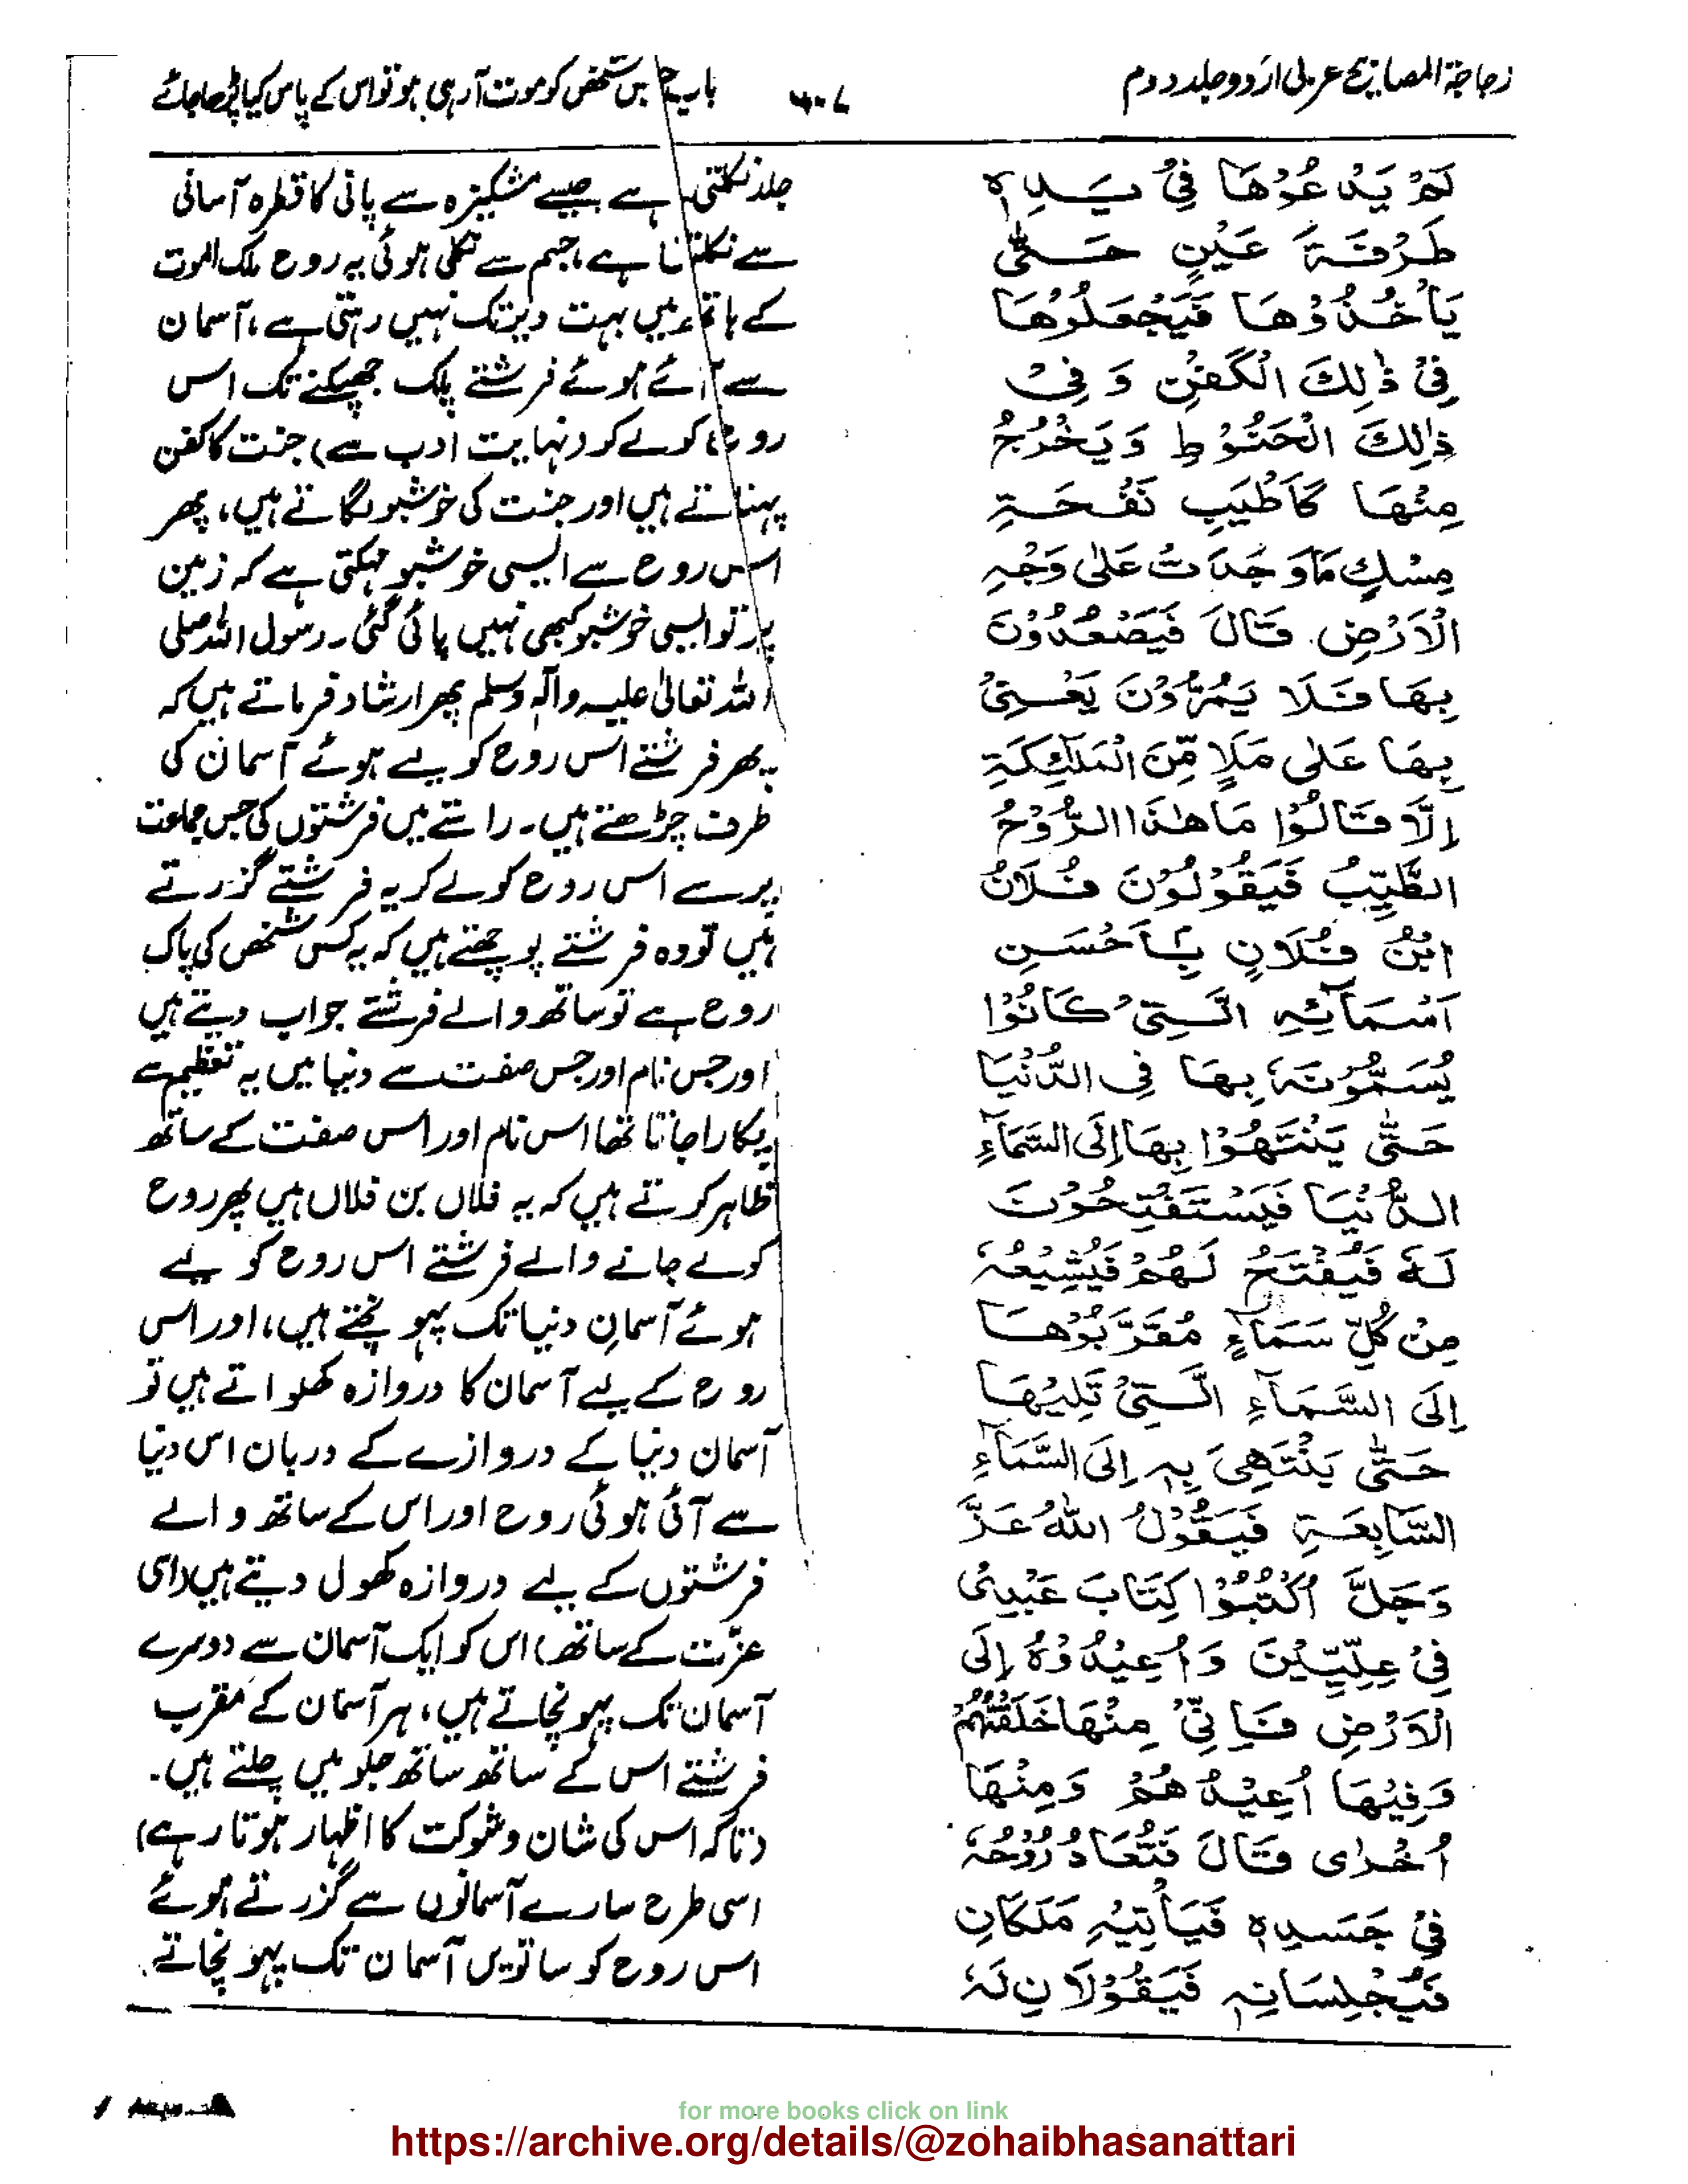 زجاجۃ المصابیح عربی اردو جلد دوم
باب جس شخص کو موت آ رہی ہو تو اس کے پاس کیا پڑھا جائے
لَمْ يَدْعُوْهَا فِيْ يَدِهٖ
طَرْفَةَ عَيْنٍ حَتّٰى
يَأْخُذُوْهَا فَيَجْعَلُوْهَا
فِيْ ذٰلِكَ الْكَفَنِ وَ فِيْ
ذٰلِكَ الْحَنُوْطِ وَيَخْرُجُ
مِنْهَا كَأَطْيَبِ نَفْحَةِ
مِسْكٍ مَا وَجَدَتْ عَلٰى وَجْهِ
الْاَرْضِ قَالَ فَيَصْعَدُوْنَ
بِهَا فَلَا يَمُرُّوْنَ يَعْنِيْ
بِهَا عَلٰى مَلَاٍ مِّنَ الْمَلٰٓئِكَةِ
اِلَّا قَالُوْا مَا هٰذَا الرُّوْحُ
الطَّيِّبُ فَيَقُوْلُوْنَ فُلَانُ
ابْنُ فُلَانٍ بِأَحْسَنِ
اَسْمَآئِهِ الَّتِيْ كَانُوْا
يُسَمُّوْنَهٗ بِهَا فِي الدُّنْيَا
حَتّٰى يَنْتَهُوْا بِهَا إِلَى السَّمَآءِ
الدُّنْيَا فَيَسْتَفْتِحُوْنَ
لَهٗ فَيُفْتَحُ لَهُمْ فَيُشِيْعُهٗ
مِنْ كُلِّ سَمَآءٍ مُقَرَّبُوْهَا
اِلَى السَّمَآءِ الَّتِيْ تَلِيْهَا
حَتّٰى يَنْتَهِيَ بِهٖ اِلَى السَّمَآءِ
السَّابِعَةِ فَيَقُوْلُ اللهُ عَزَّ
وَجَلَّ اُكْتُبُوْا كِتَابَ عَبْدِيْ
فِيْ عِلِّيِّيْنَ وَاُعِيْدُوْهُ إِلَى
الْاَرْضِ فَاِنِّيْ مِنْهَا خَلَقْتُهُمْ
وَفِيْهَا اُعِيْدُهُمْ وَمِنْهَا
اُخْرٰى قَالَ فَتُعَادُ رُوْحُهٗ
فِيْ جَسَدِهٖ فَيَأْتِيْهِ مَلَكَانِ
فَيُجْلِسَانِهٖ فَيَقُوْلَانِ لَهٗ
جلد نکلتی ہے جیسے مشکیزہ سے پانی کا قطرہ آسانی
سے نکلتا ہے، جسم سے نکلی ہوئی یہ روح ملک الموت
کے ہاتھ میں بہت دیر تک نہیں رہتی ہے، آسمان
سے آئے ہوئے فرشتے پلک جھپکنے تک اس
روح کو لے کر (نہایت ادب سے) جنت کا کفن
پہناتے ہیں اور جنت کی خوشبو لگاتے ہیں، پھر
اس روح سے ایسی خوشبو مہکتی ہے کہ زمین
پر تو ایسی خوشبو کبھی نہیں پائی گئی۔ رسول اللہ صلی
اللہ تعالیٰ علیہ وآلہٖ وسلم پھر ارشاد فرماتے ہیں کہ
پھر فرشتے اس روح کو لیے ہوئے آسمان کی
طرف چڑھتے ہیں۔ راستے میں فرشتوں کی جس جماعت
پر سے اس روح کو لے کر یہ فرشتے گزرتے
ہیں تو وہ فرشتے پوچھتے ہیں کہ یہ کس شخص کی پاک
روح ہے تو ساتھ والے فرشتے جواب دیتے ہیں
اور جس نام اور جس صفت سے دنیا میں یہ تعظیم سے
پکارا جاتا تھا اس نام اور اس صفت کے ساتھ
ظاہر کرتے ہیں کہ یہ فلاں بن فلاں ہیں پھر روح
کو لے جانے والے فرشتے اس روح کو لیے
ہوئے آسمانِ دنیا تک پہونچتے ہیں، اور اس
روح کے لیے آسمان کا دروازہ کھلواتے ہیں تو
آسمان دنیا کے دروازے کے دربان اس دنیا
سے آئی ہوئی روح اور اس کے ساتھ والے
فرشتوں کے لیے دروازہ کھول دیتے ہیں (اسی
عزّت کے ساتھ) اس کو ایک آسمان سے دوسرے
آسمان تک پہونچاتے ہیں، ہر آسمان کے مقرب
فرشتے اس کے ساتھ ساتھ جلو میں چلتے ہیں۔
(تاکہ اس کی شان و شوکت کا اظہار ہوتا رہے)
اسی طرح سارے آسمانوں سے گزرتے ہوئے
اس روح کو ساتویں آسمان تک پہونچاتے
for more books click on link
https://archive.org/details/@zohaibhasanattari